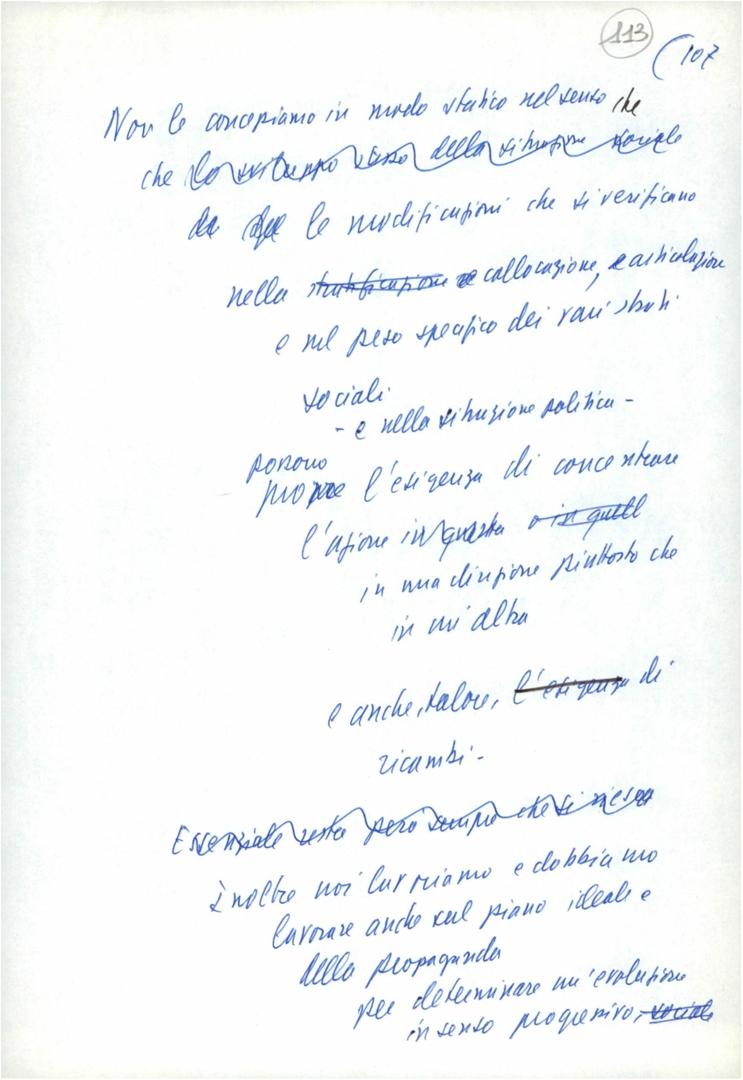 113
(107
Non le concepiamo in modo statico nel senso che
che lo sviluppo stesso della situazione sociale
le modificazioni che si verificano
nella stratificazione e collocazione, e articolazione
e nel peso specifico dei vari strati
sociali
- e nella situzione politica -
pongono
l'esigenza di concentrare
l'azione in questa o in quell
in una direzione piuttosto che
in un'altra
e anche, talora, l'esigenza di
ricambi -
Essenziale resta però sempre che si riesca
Inoltre noi lavoriamo e dobbiamo
lavorare anche sul piano ideale e
della propaganda
per determinare un'evoluzione
in senso progressivo, sociale